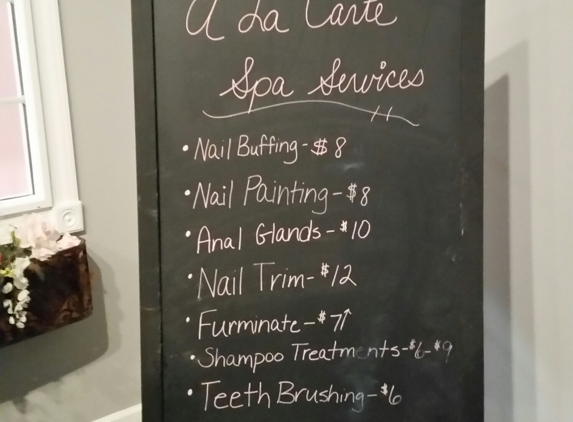 A La Carte
Spa Services
• Nail Buffing - $8
• Nail Painting - $8
• Anal Glands - $10
• Nail Trim - $12
• Furminate - $7↑
• Shampoo Treatments - $6 - $9
• Teeth Brushing - $6